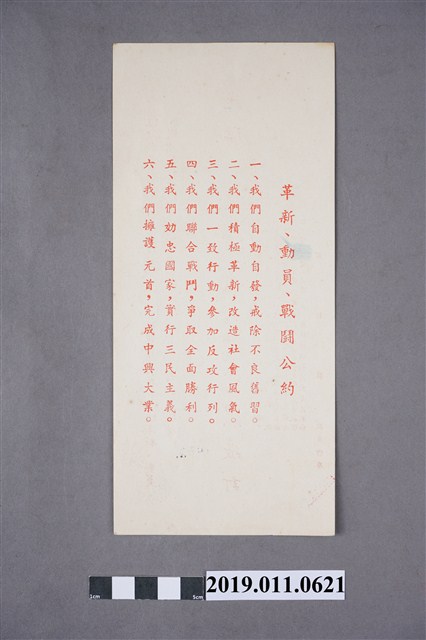 革新、動員、戰鬪公約
一、我們自動自發，戒除不良舊習。
二、我們積極革新，改造社會風氣。
三、我們一致行動，參加反攻行列。
四、我們聯合戰鬥，爭取全面勝利。
五、我們効忠國家，實行三民主義。
六、我們擁護 元首，完成中興大業。
1cm
5cm
2019.011.0621